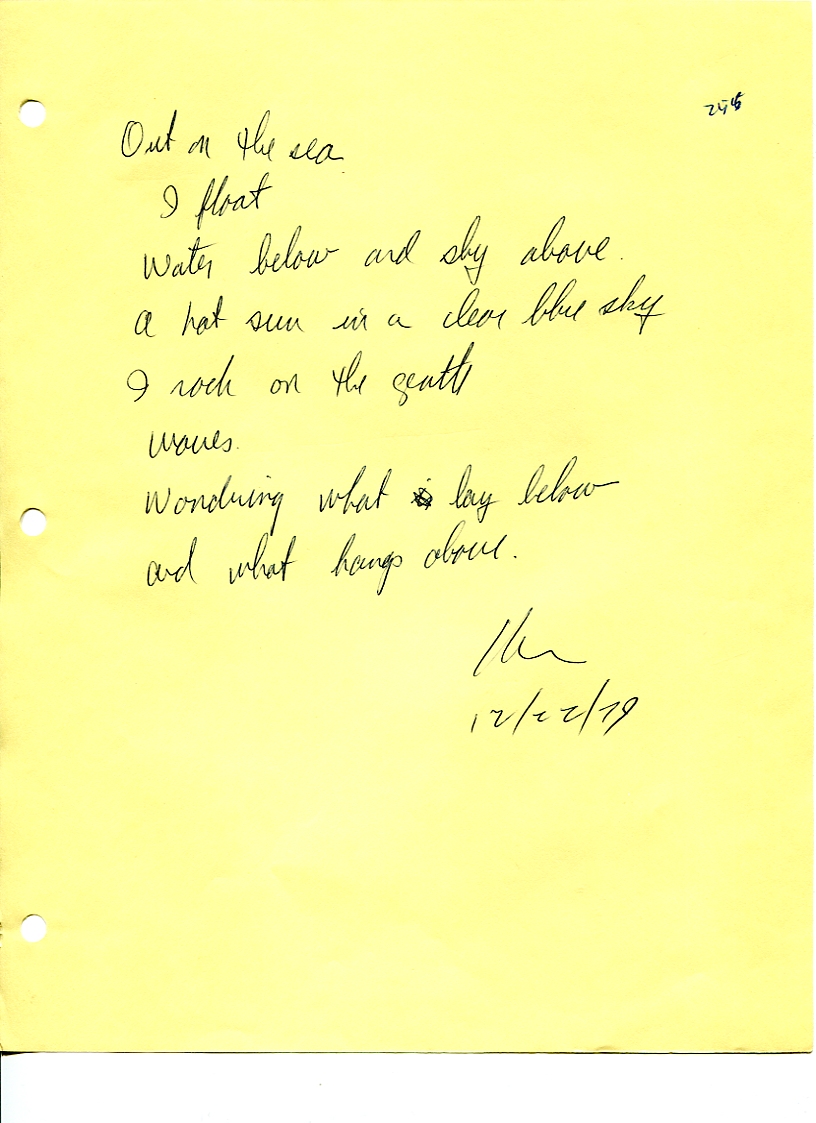 Out on the sea
I float
Water below and sky above.
A hot sun in a clear blue sky
I rock on the gentle
waves.
Wondring what lay below
and what hangs above.
12/22/79